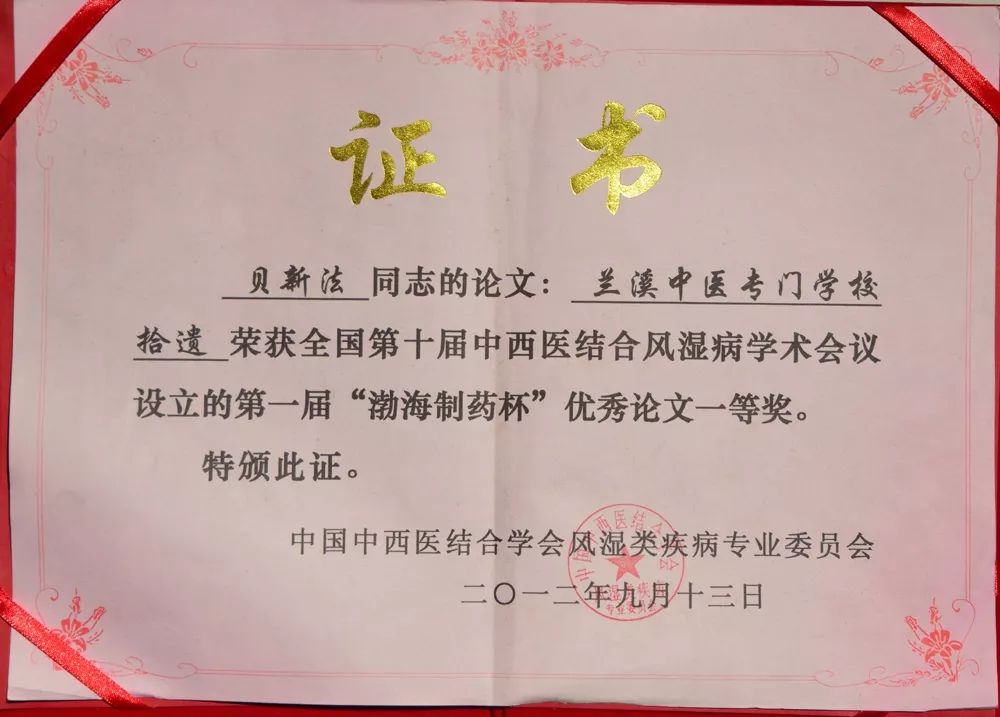 证书
贝新法 同志的论文：兰溪中医专门学校
拾遗 荣获全国第十届中西医结合风湿病学术会议
设立的第一届“渤海制药杯”优秀论文一等奖。
特颁此证。
中国中西医结合学会风湿类疾病专业委员会
二〇一二年九月十三日